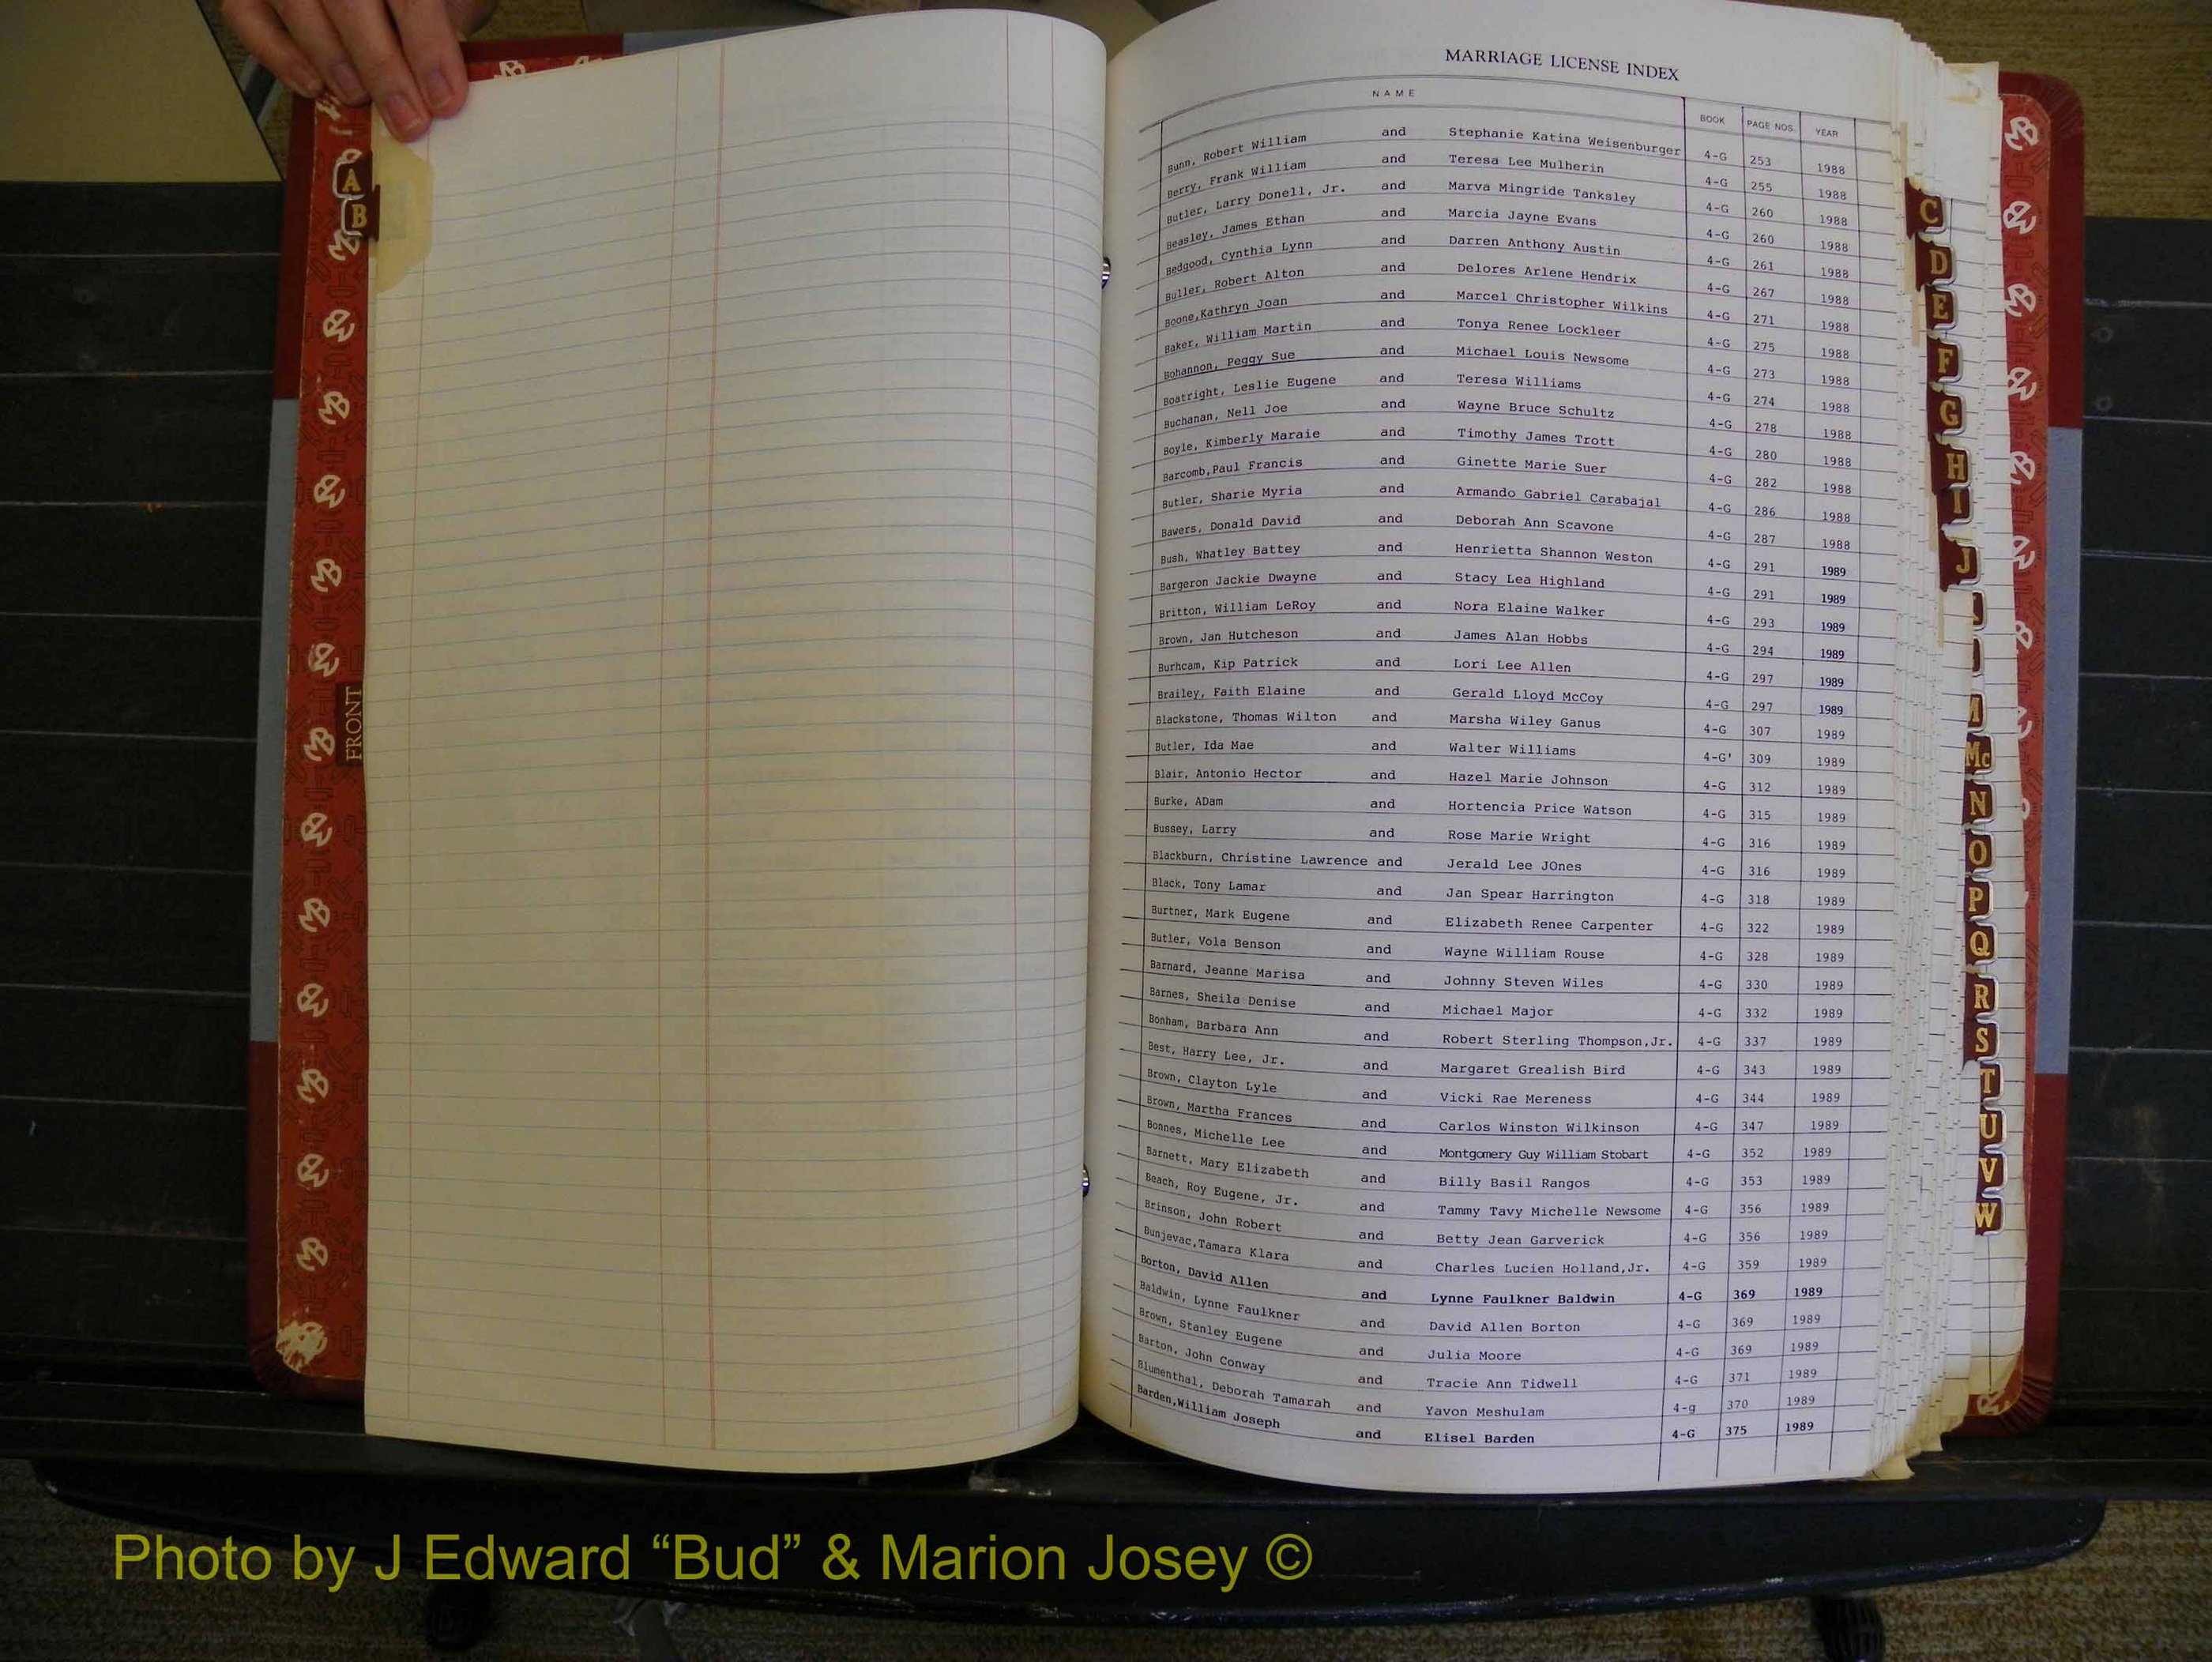 A
B
FRONT
MARRIAGE LICENSE INDEX
NAME BOOK PAGE NOS. YEAR
Bunn, Robert William and Stephanie Katina Weisenburger 4-G 253 1988
Berry, Frank William and Teresa Lee Mulherin 4-G 255 1988
Butler, Larry Donell, Jr. and Marva Mingride Tanksley 4-G 260 1988
Beasley, James Ethan and Marcia Jayne Evans 4-G 260 1988
Bedgood, Cynthia Lynn and Darren Anthony Austin 4-G 261 1988
Buller, Robert Alton and Delores Arlene Hendrix 4-G 267 1988
Boone,Kathryn Joan and Marcel Christopher Wilkins 4-G 271 1988
Baker, William Martin and Tonya Renee Lockleer 4-G 275 1988
Bohannon, Peggy Sue and Michael Louis Newsome 4-G 273 1988
Boatright, Leslie Eugene and Teresa Williams 4-G 274 1988
Buchanan, Nell Joe and Wayne Bruce Schultz 4-G 278 1988
Boyle, Kimberly Maraie and Timothy James Trott 4-G 280 1988
Barcomb,Paul Francis and Ginette Marie Suer 4-G 282 1988
Butler, Sharie Myria and Armando Gabriel Carabajal 4-G 286 1988
Bawers, Donald David and Deborah Ann Scavone 4-G 287 1988
Bush, Whatley Battey and Henrietta Shannon Weston 4-G 291 1989
Bargeron Jackie Dwayne and Stacy Lea Highland 4-G 291 1989
Britton, William LeRoy and Nora Elaine Walker 4-G 293 1989
Brown, Jan Hutcheson and James Alan Hobbs 4-G 294 1989
Burhcam, Kip Patrick and Lori Lee Allen 4-G 297 1989
Brailey, Faith Elaine and Gerald Lloyd McCoy 4-G 297 1989
Blackstone, Thomas Wilton and Marsha Wiley Ganus 4-G 307 1989
Butler, Ida Mae and Walter Williams 4-G' 309 1989
Blair, Antonio Hector and Hazel Marie Johnson 4-G 312 1989
Burke, ADam and Hortencia Price Watson 4-G 315 1989
Bussey, Larry and Rose Marie Wright 4-G 316 1989
Blackburn, Christine Lawrence and Jerald Lee JOnes 4-G 316 1989
Black, Tony Lamar and Jan Spear Harrington 4-G 318 1989
Burtner, Mark Eugene and Elizabeth Renee Carpenter 4-G 322 1989
Butler, Vola Benson and Wayne William Rouse 4-G 328 1989
Barnard, Jeanne Marisa and Johnny Steven Wiles 4-G 330 1989
Barnes, Sheila Denise and Michael Major 4-G 332 1989
Bonham, Barbara Ann and Robert Sterling Thompson,Jr. 4-G 337 1989
Best, Harry Lee, Jr. and Margaret Grealish Bird 4-G 343 1989
Brown, Clayton Lyle and Vicki Rae Mereness 4-G 344 1989
Brown, Martha Frances and Carlos Winston Wilkinson 4-G 347 1989
Bonnes, Michelle Lee and Montgomery Guy William Stobart 4-G 352 1989
Barnett, Mary Elizabeth and Billy Basil Rangos 4-G 353 1989
Beach, Roy Eugene, Jr. and Tammy Tavy Michelle Newsome 4-G 356 1989
Brinson, John Robert and Betty Jean Garverick 4-G 356 1989
Bunjevac,Tamara Klara and Charles Lucien Holland,Jr. 4-G 359 1989
Borton, David Allen and Lynne Faulkner Baldwin 4-G 369 1989
Baldwin, Lynne Faulkner and David Allen Borton 4-G 369 1989
Brown, Stanley Eugene and Julia Moore 4-G 369 1989
Barton, John Conway and Tracie Ann Tidwell 4-G 371 1989
Blumenthal, Deborah Tamarah and Yavon Meshulam 4-g 370 1989
Barden,William Joseph and Elisel Barden 4-G 375 1989
C
D
E
F
G
H
I
J
M
Mc
N
O
P
Q
R
S
T
U
V
W
Photo by J Edward “Bud” & Marion Josey ©